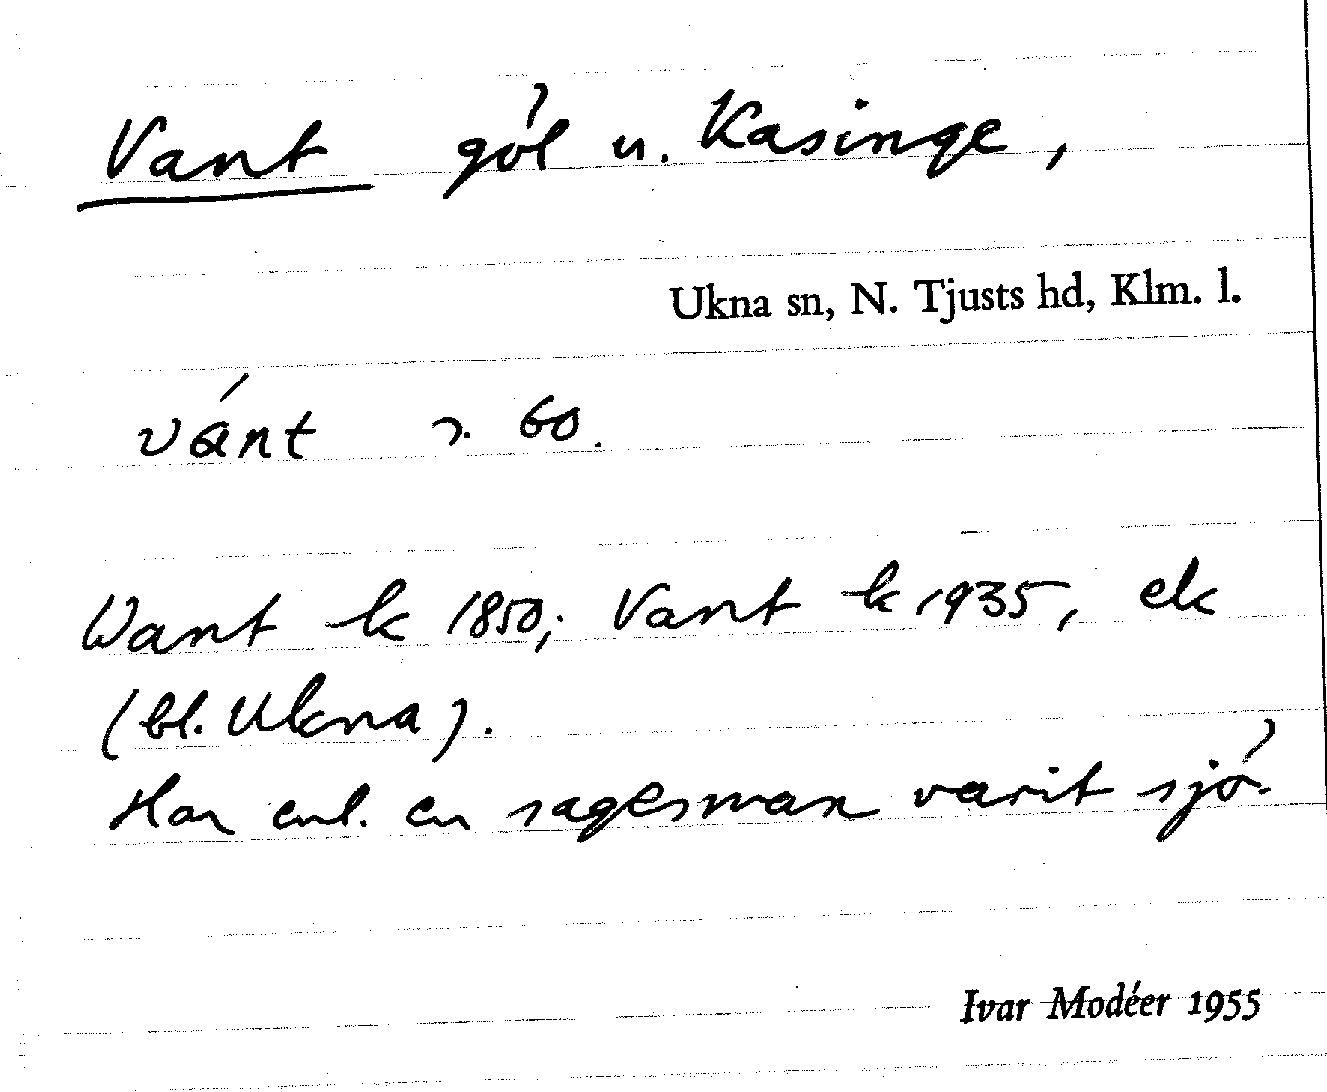 Vant göl u. Kasinge,
Ukna sn, N. Tjusts hd, Klm. l.
vánt 60.
Want k 1850; Vant k 1935, ek
(bl. Ukna).
Har enl. en sagesman varit sjö.
Ivar Modéer 1955